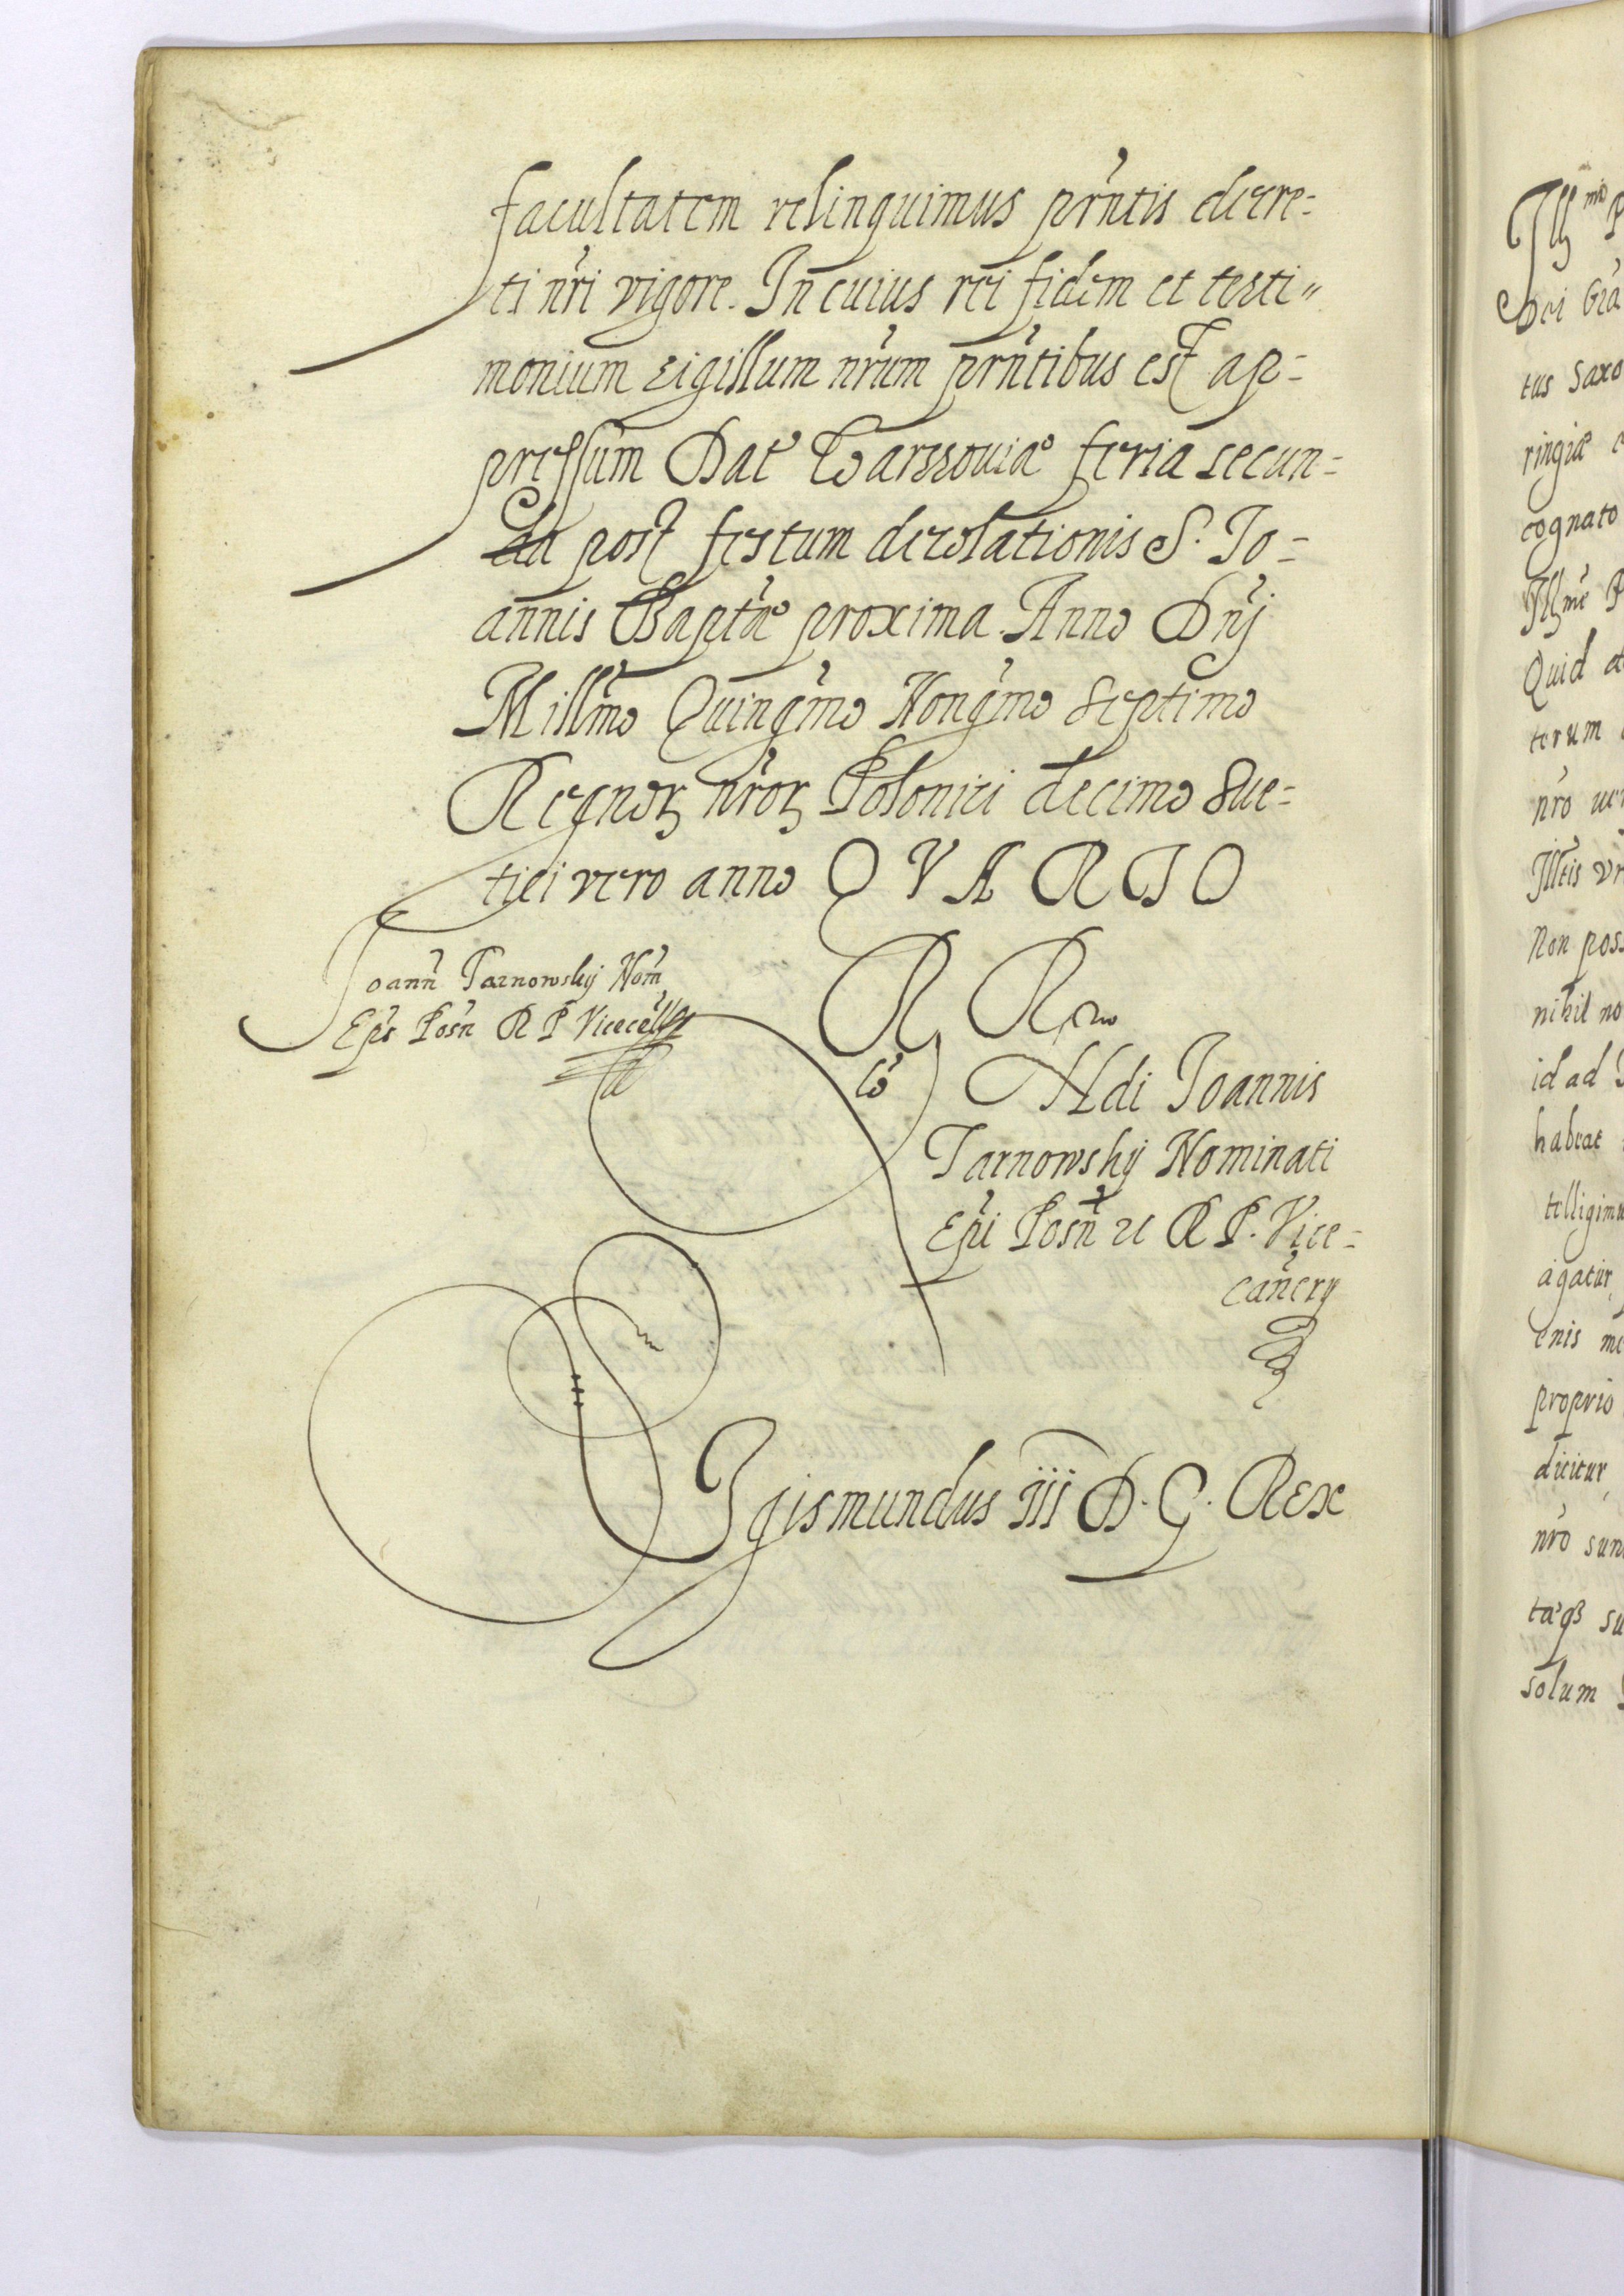 facultatem relinquimus prñtis decre=
ti nr̃i vigore. In cuius rei fidem et testi"
monium sigillum nr̃um prñtibus est ap=
pressum Dat̃ Warssouiæ feria secun=
da post festum decolationis S. Jo=
annis Baptæ proxima. Anno Dnĩ
Millm̃o Quingm̃o Nongm̃o Septimo
Regnoꝝ nr̃oꝝ Polonici decimo Sue=
tici vero anno QVARTO
Joann̄ Tarnowskÿ Nom̃
Ep̃s Posñ R P Vicecã
R R
Ndi Joannis
Tarnowskÿ Nominati
Ep̃i Posñ et R P. Vice=
cañcrÿ
Sgismundus iii D. G. Rex
Dei Grã
tus Saxo
ringiæ
cognato
Quid
torum
nr̃o
Non poss
nihil no
id ad
habeat
telligimus
agatur
enis
proprio
dicitur
nr̃o sun
su
solum